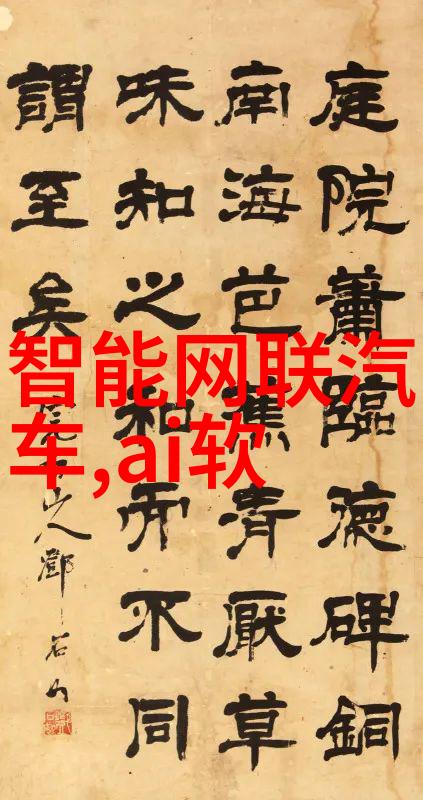 智能网联汽
车,ai软
庭院蕭臨德碑銅
南海芭蕉青厭草
味知之和而不同
謂至矣
完白山人鄧石如